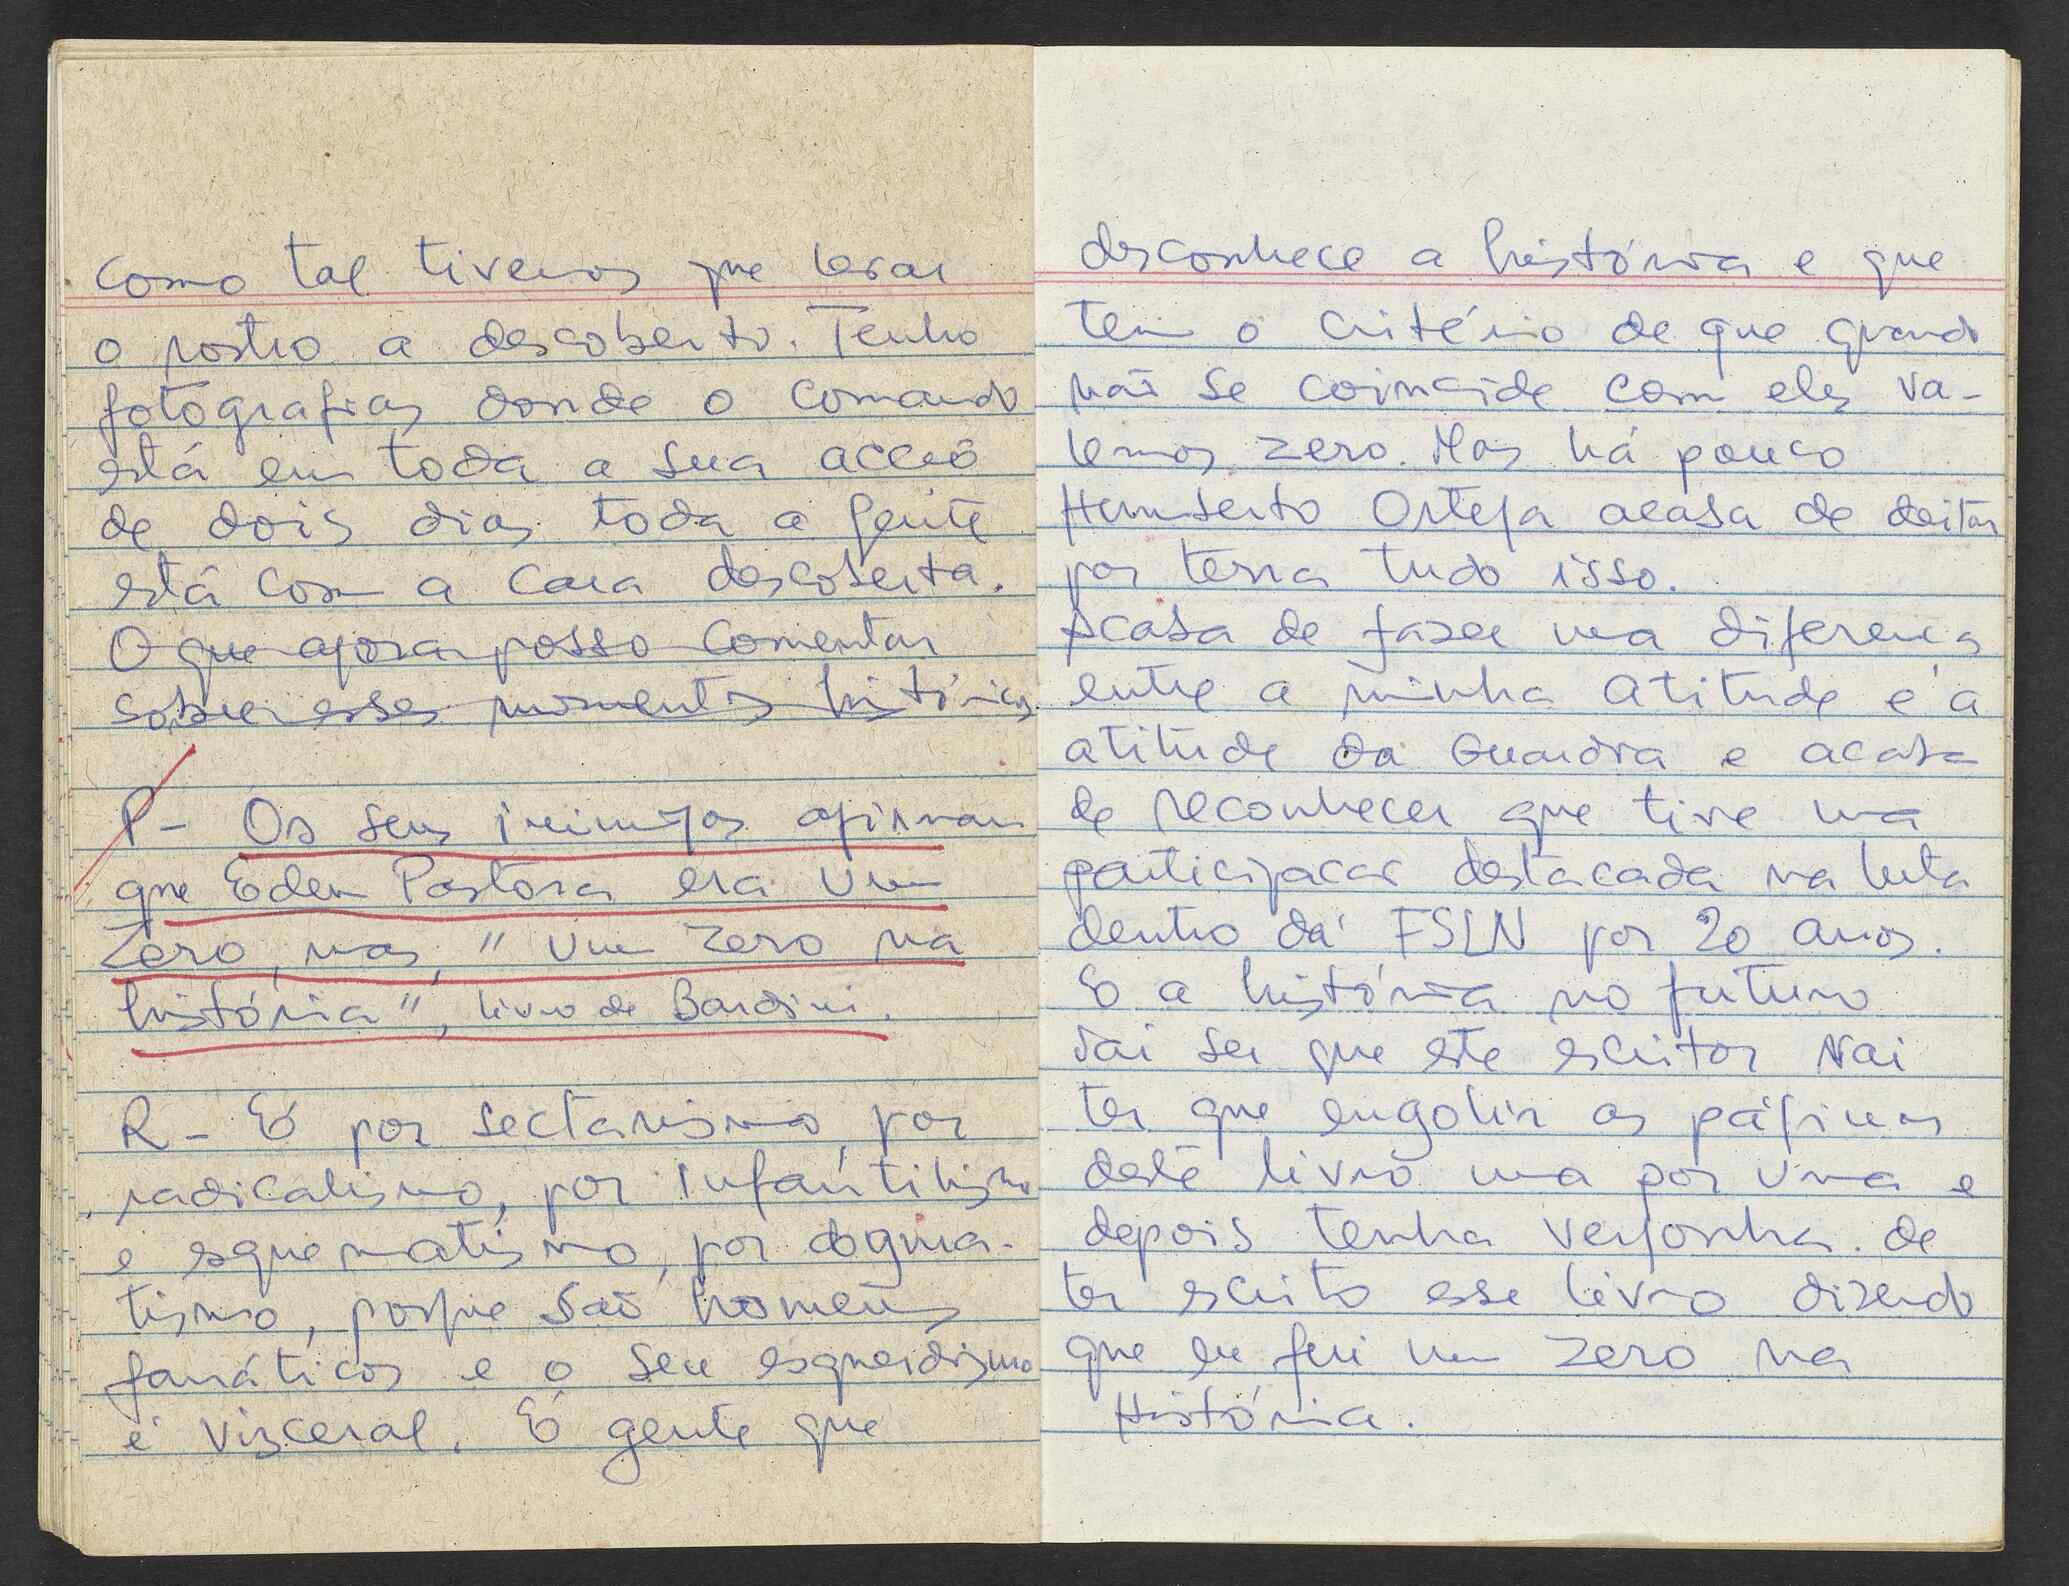 Como tal tivemos que levar
o rostro a descoberto. Tenho
fotografias donde o comando
está em toda a sua acció
de dois dias toda a gente
está com a cara descoberta.
O que agora posso comentar
sobre esses momentos históricos
P- Os seus inimigos afirmam
que Eden Pastora era um
Zero, mas, " um zero na
história", livro de Bardini.
R- É por sectarismo, por
radicalismo, por infantilismo
e esquematismo, por dogma-
tismo, porque são homens
fanáticos e o seu esquerdismo
é visceral. É gente que
desconhece a história e que
tem o critério de que quando
não se coincide com eles va-
lemos zero. Mas há pouco
Humberto Ortega acaba de deitar
por terra tudo isso.
Acaba de fazer uma diferença
entre a minha atitude e a
atitude da Guardia e acaba
de reconhecer que tive uma
participacao destacada na luta
dentro da FSLN por 20 anos.
E a história no futuro
vai ser que este escritor vai
ter que engolir as páginas
deste livro uma por uma e
depois tenha vergonha de
ter escrito esse livro dizendo
que eu fui um zero na
História.